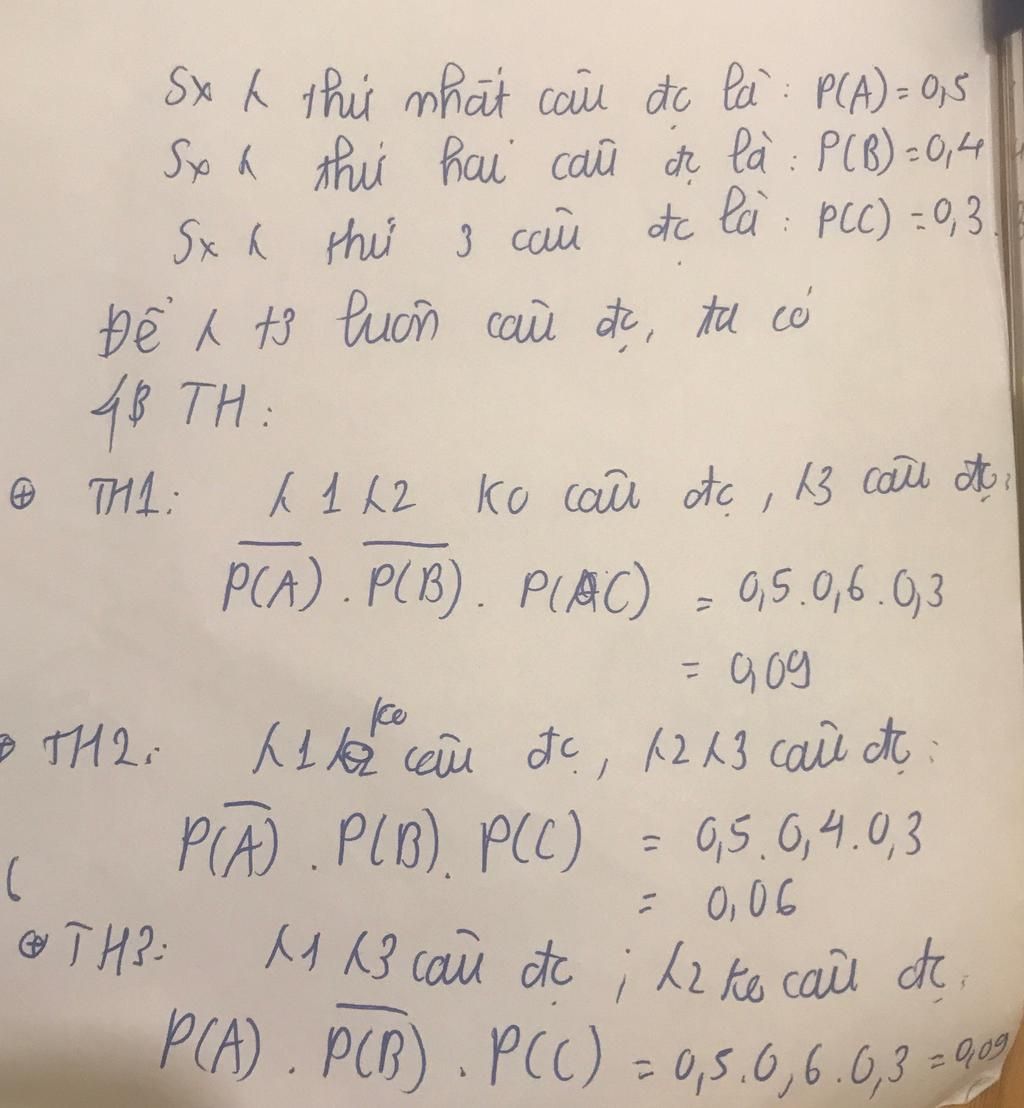 Sx λ thứ nhất câu đc là: P(A) = 0,5
Sx λ thứ hai câu đc là: P(B) = 0,4
Sx λ thứ 3 câu đc là: P(C) = 0,3
Để λ t3 luôn câu đc, ta có
TH:
⊕ TH1: λ1 λ2 ko câu đc, λ3 câu đc:
P(A̅) . P(B̅) . P(C) = 0,5.0,6.0,3
= 0,09
⊕ TH2: λ1 ko câu đc, λ2 λ3 câu đc:
P(A̅) . P(B). P(C) = 0,5.0,4.0,3
= 0,06
⊕ TH3: λ1 λ3 câu đc ; λ2 ko câu đc
P(A) . P(B̅) . P(C) = 0,5.0,6.0,3 = 0,09